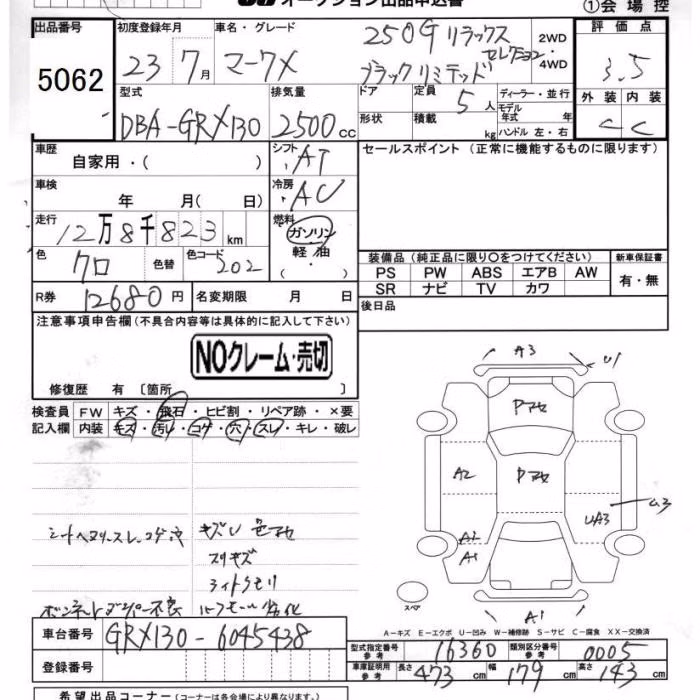 オークション出品申込書
①会場控
出品番号 初度登録年月 車名・グレード 評価点
5062
23 7月 マークX 250G リラックス セレクション・ 2WD
ブラックリミテッド ・4WD
3.5
型式 排気量 ドア 定員 5人 ディーラー・並行 外装 内装
DBA-GRX130 2500cc 形状 積載 kg モデル年式 年 ハンドル 左・右 C C
車歴 自家用・( ) シフト・AT
セールスポイント(正常に機能するものに限ります)
車検 年 月( 日) 冷房・AC
走行 12万8千823km 燃料 ガソリン
軽油
・( )
色 クロ 色替 色コード 202
装備品(純正品に限り〇をつけてください) 新車保証書
PS PW ABS エアB AW 有・無
SR ナビ TV カワ
R券 12680円 名変期限 月 日
後日品
注意事項申告欄(不具合内容等は具体的に記入して下さい)
NOクレーム・売切
修復歴 有 〔箇所 〕
検査員 FW キズ・飛石・ヒビ割・リペア跡・×要
記入欄 内装 キズ・汚レ・コゲ・穴・スレ・キレ・破レ
A3 U1
Pアセ
A2 Pアセ
UA3
A2
A1
スペア
A1
シートヘタリ、スレ、コゲ穴 キズU 色アセ
スリキズ
ライトクモリ
ボンネットダンパー不良 ルーフモール劣化
A-キズ E-エクボ U-凹み W-補修跡 S-サビ C-腐食 XX-交換済
車台番号 GRX130-6045438
型式指定番号 参考 16360 類別区分番号 参考 0005
登録番号
車庫証明用 参考 長さ 473cm 幅 179cm 高さ 143cm
希望出品コーナー(コーナーは各会場により異なります。)